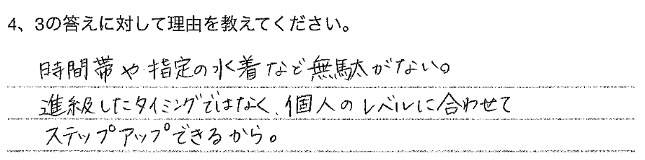 4、3の答えに対して理由を教えてください。
時間帯や指定の水着など無駄がない。
進級したタイミングではなく、個人のレベルに合わせて
ステップアップできるから。